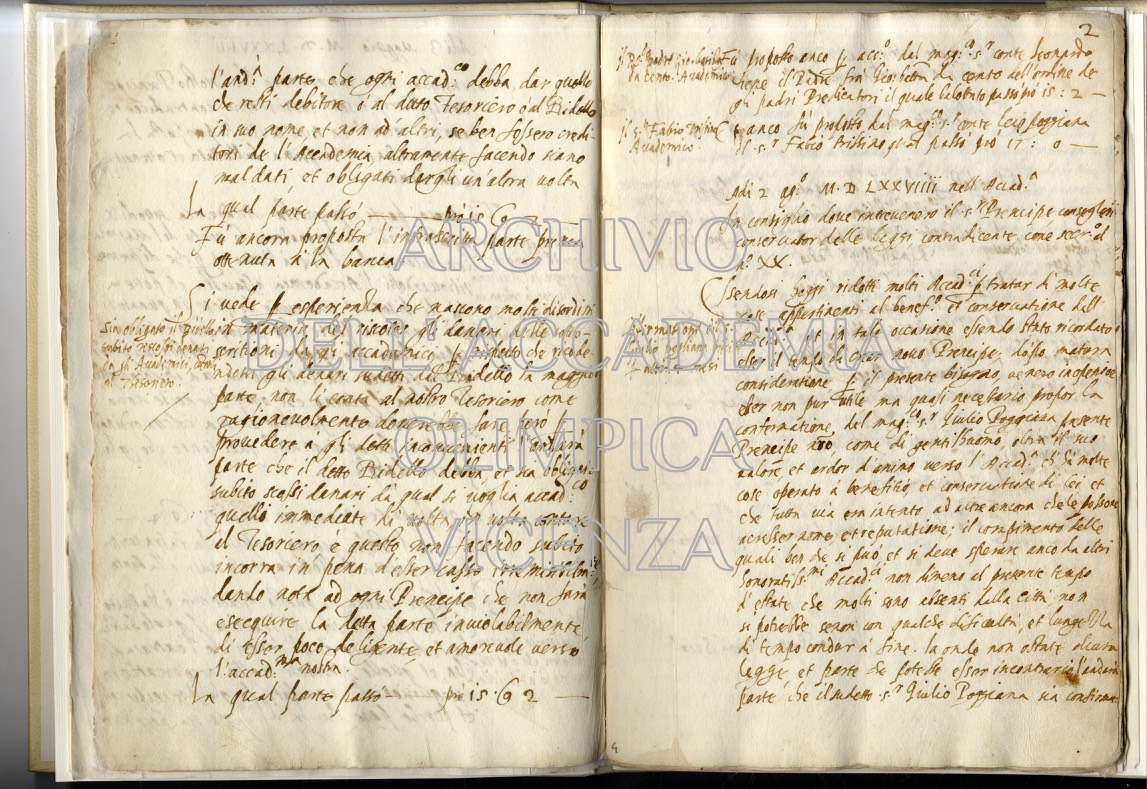 l'and.ª parte che ogni accad.co debba dar quello
che resti debitore o al detto Tesoriero o al Bidello
in suo nome et non ad altri, se ben fossero credi
tori de l'Accademia, altramente facendo siano
mal dati, et obligati dargli un'altra volta
La qual parte passò pro 15 C 2
Fù ancora proposta l'infrascritta parte prima
ottenuta in la banca
Si vede per esperienza che nascono molti disordini
in materia del riscotter gli danari delle obo
scritioni da gli accademici, per rispetto che
detti gli denari sudetti dal Bidello la maggior
parte non li conta al nostro Tesoriero come
ragionevolmente doverebbe fare però per
provedere a gli detti inconvenienti l'andarà
parte che il detto Bidello debba, et sia obligato
subito scossi danari da qual si voglia accad.co
quelli immediate di volta in volta contare
il Tesoriero e questo non facendo subito
incorra in pena d'esser casso irremissibilm.te
dando nota ad ogni Prencipe che non farà
esequire la detta parte inviolabilmente
di esser poco deligente, et amorevole verso
l'accad.mia nostra.
La qual parte passò pro 15 C 2
Sia obligato il Bidello
subito scossi denari
da gli Academici, contar
al Tesoriero.
2
Il R.do Padre Gio. Battista
da Cento Academico
Fù proposto anco per acc.o dal mag.co s.r conte Leonardo
Tiene il Padre frà Gio: batta da Cento dell'ordine de
gli padri Predicatori il quale balotato passò pro 15 : 2
Il s.r Fabio Trissino
Academico.
Et anco fù proposto dal mag.co s.r conte Leço poggiana
il s.r Fabio Trissino qual passò pro 17 : 0
Adi 2 ag.o M. D LXXVIIII nell'Accad.ª
In consiglio dove intrevenero il s.r Prencipe conseglieri
conservator delle leggi contradicente, cone secr.o al
n.o XX.
Essendosi hoggi ridotti molti Accad.ci per tratar di molte
cose appertinenti al benef.o et conservatione dell'
et in tale occasione essendo stato ricordato
esser il tempo di crear novo Prencipe, doppo matura
consideratione per il presente bisogno, venero in openione
esser non pur utile ma quasi necessario propor la
confermatione, del mag.co s.r Giulio Poggiana presente
Prencipe nro, come di gentilhuomo, oltra il suo
valore, et ardor d'animo verso l'Accad.ª ch'hà molte
cose operato à benefitio, et conservatione di lei et
che tutta via era intento ad altre ancora che le possono
accresser nome, et reputatione, il compimento delle
quali ben che si può, et si deve sperare anco da altri
honoratiss.mi Accad.ci non dimeno al presente tempo
d'estate che molti sono absenti dalla città non
si potrebbe senon con qualche dificoltà, et lunghezza
di tempo condur à fine. la onde non ostante alcuna
legge, et parte che potesse esser incontrario l'andarà
parte che il sudetto s.r Giulio Poggiana sia confirma
4
ARCHIVIO
DELL'ACCADEMIA
OLIMPICA
VICENZA